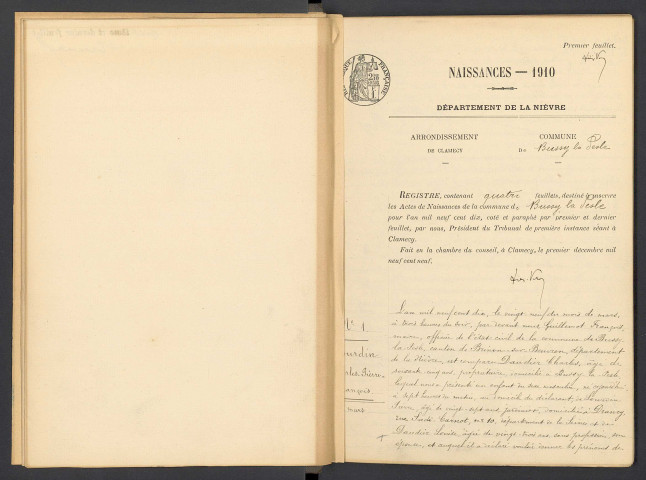 Premier feuillet.
NAISSANCES — 1910
DÉPARTEMENT DE LA NIÈVRE
ARRONDISSEMENT
DE CLAMECY
COMMUNE
DE Bussy la Pesle
REGISTRE, contenant quatre feuillets, destiné à inscrire
les Actes de Naissances de la commune de Bussy la Pesle
pour l'an mil neuf cent dix, coté et paraphé par premier et dernier
feuillet, par nous, Président du Tribunal de première instance séant à
Clamecy.
Fait en la chambre du conseil, à Clamecy, le premier décembre mil
neuf cent neuf.
N° 1
L'an mil neuf cent dix, le vingt neuf du mois de mars,
à trois heures du soir, par devant nous Guillemot François,
maire, officier de l'état civil de la commune de Bussy
la Pesle, canton de Brinon-sur-Beuvron, département
de la Nièvre, est comparu Daudier Charles, âgé de
soixante ans, propriétaire, domicilié à Bussy la Pesle
lequel nous a présenté un enfant du sexe masculin, né
à sept heures du matin, au domicile du déclarant,
âgé de vingt-sept ans, domicilié à Drancy
rue Sadi Carnot, n° 10, département de la Seine et de
Daudier Louise, âgée de vingt-trois ans, sans profession, son
épouse, et auquel il a déclaré vouloir donner les prénoms de